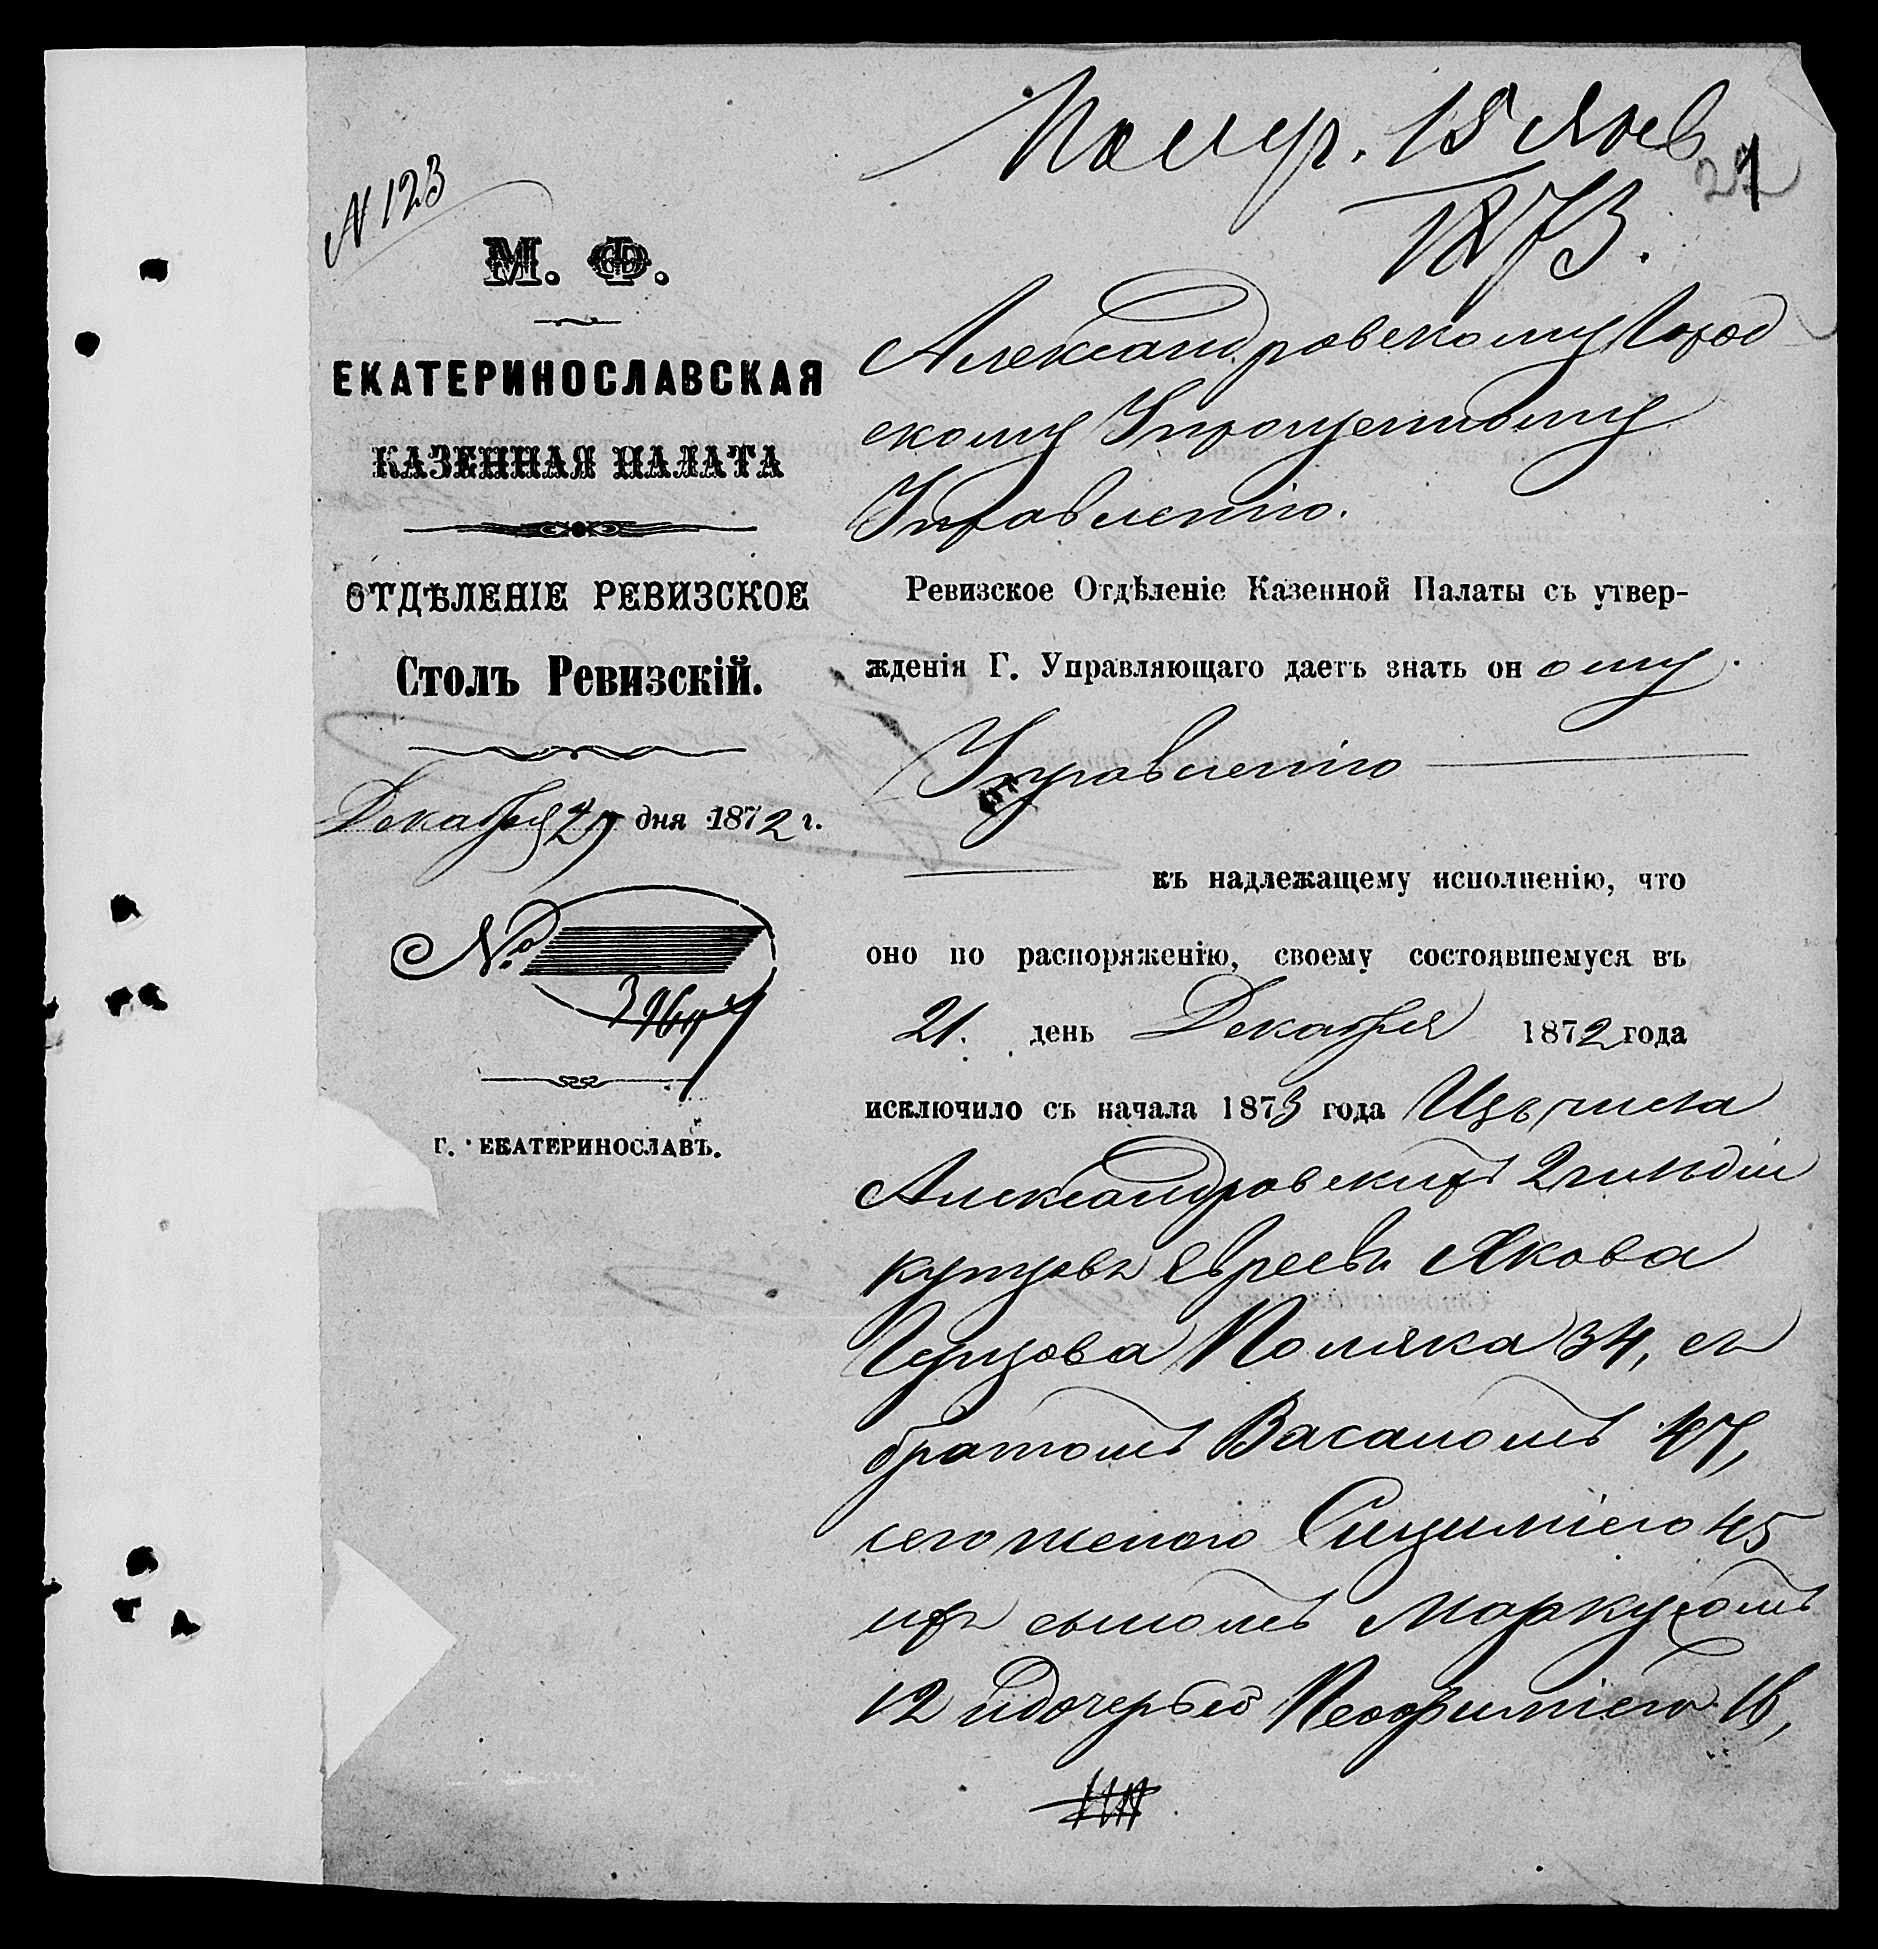 Получ. 18 Янв
1873.
21
N 123
М. Ф.
ЕКАТЕРИНОСЛАВСКАЯ
КАЗЕННАЯ ПАЛАТА
ОТДѢЛЕНІЕ РЕВИЗСКОЕ
Столъ Ревизскій.
Декабря 29 дня 1872 г.
№
Г. ЕКАТЕРИНОСЛАВЪ.
Александровскому Город
скому Упрощенному
Управленію.
Ревизское Отдѣленіе Казенной Палаты съ утвер-
жденія Г. Управляющаго даетъ знать оному
Управленію
къ надлежащему исполненію, что
оно по распоряженію, своему состоявшемуся въ
21. день Декабря 1872 года
исключило съ начала 1873 года Изъ числа
Александровскихъ 2 гильдіи
купцовъ евреевъ Якова
Герцова Поляка 34, съ
братомъ Васаномъ 47,
его женою 45
ихъ сыномъ Маркусомъ
12 и дочерью 16,